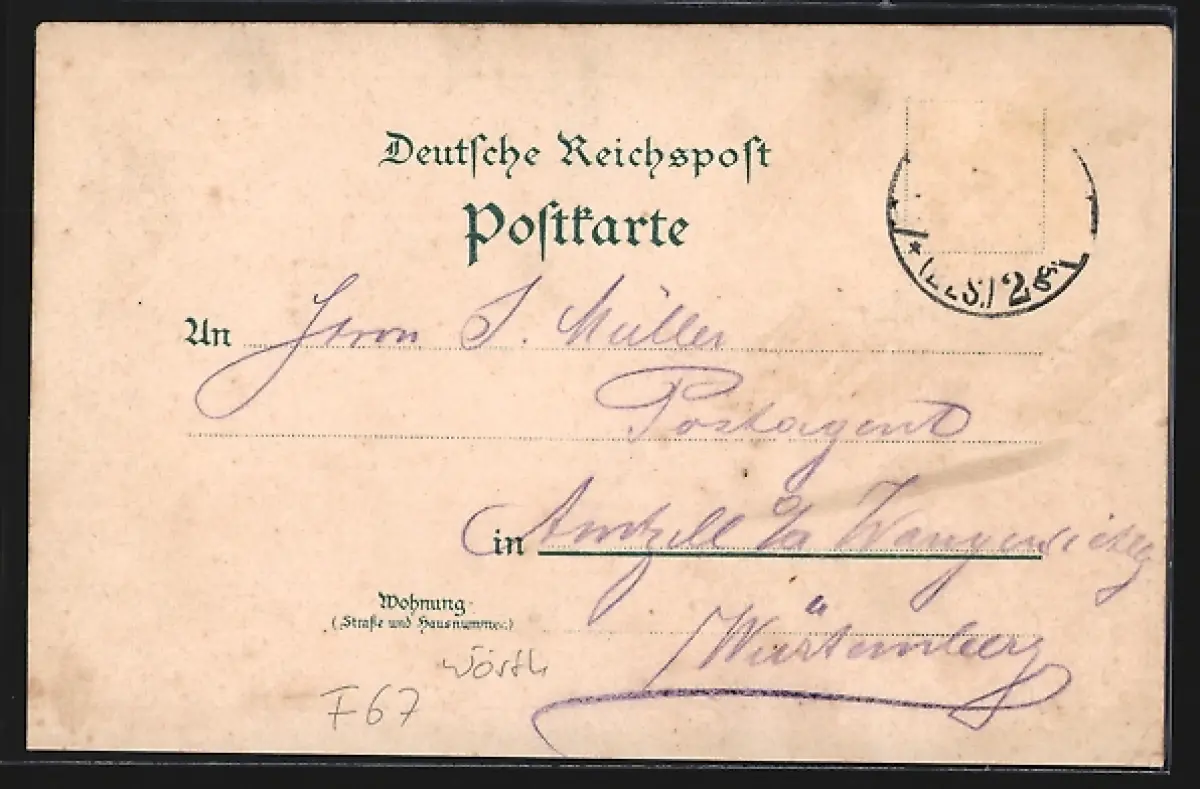 Deutsche Reichspost
Postkarte
An Herrn J. Müller
Postagent
in Amtzell o/a Wangen i. Allg
Würtemberg
Wohnung
(Straße und Hausnummer)
Wörth
F67
* (ELS.) 2